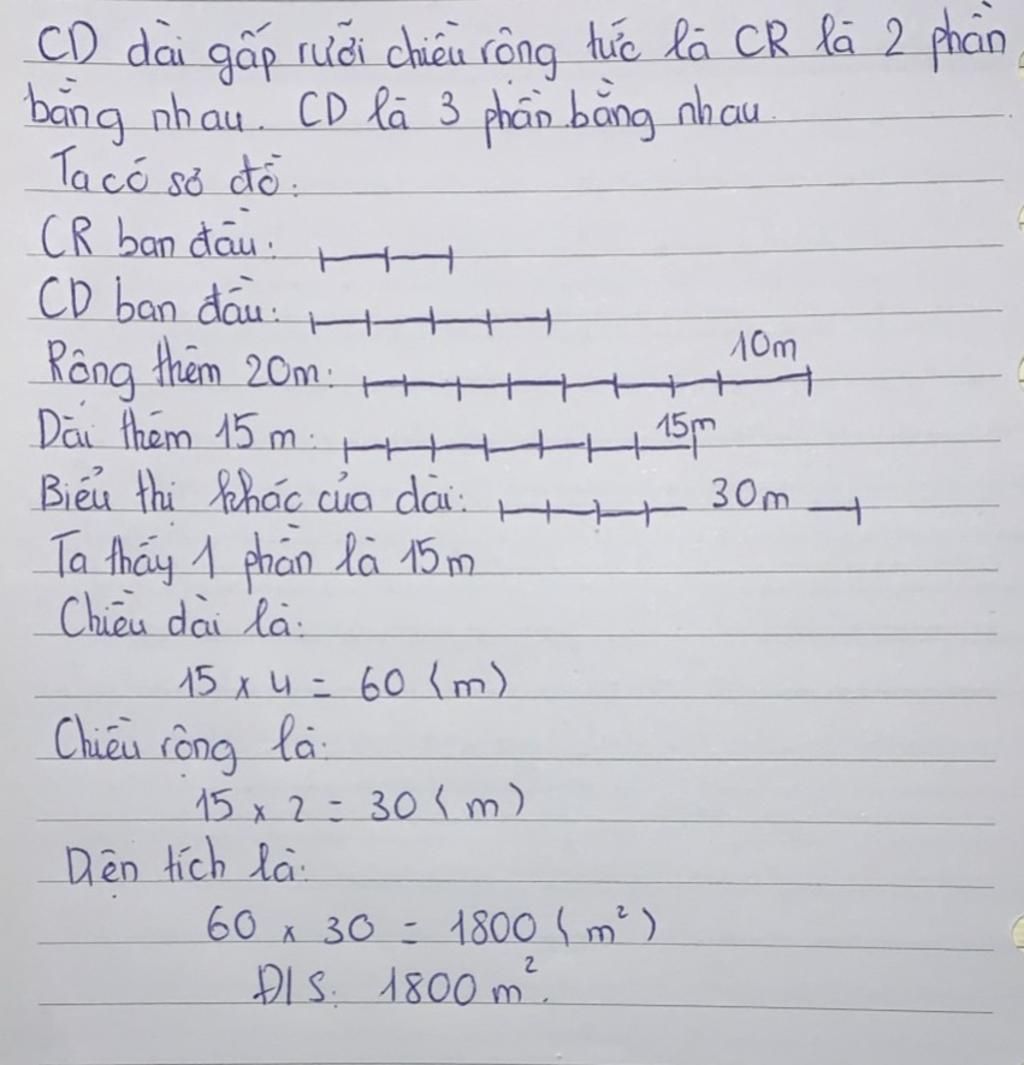 CD dài gấp rưỡi chiều rộng tức là CR là 2 phần
bằng nhau. CD là 3 phần bằng nhau.
Ta có sơ đồ:
CR ban đầu:
CD ban đầu:
10m
Rộng thêm 20m:
Dài thêm 15m: 15m
Biểu thị khác của dài: 30m
Ta thấy 1 phần là 15m
Chiều dài là:
15 x 4 = 60 (m)
Chiều rộng là:
15 x 2 = 30 (m)
Diện tích là:
60 x 30 = 1800 (m²)
Đ/S: 1800 m².